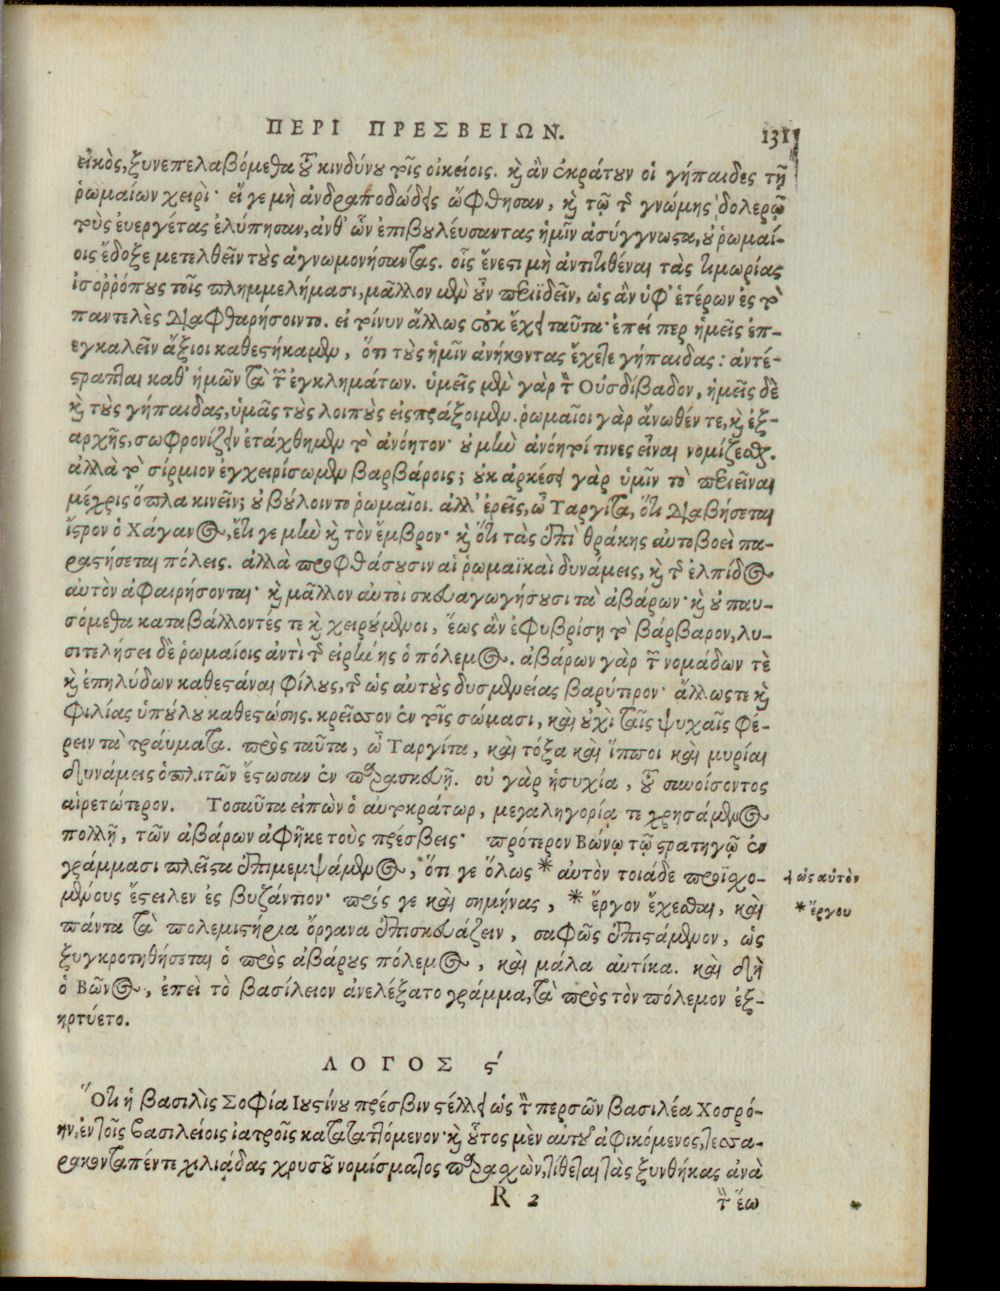 ΠΕΡΙ ΠΡΕΣΒΕΙΩΝ. 131
εἰκὸς, ξυνεπελαβόμεθα τοῦ κινδύνου τοῖς οἰκείοις. καὶ ἂν ἐκράτουν οἱ γήπαιδες τῇ
ῥωμαίων χειρὶ· εἴ γε μὴ ἀνδραποδώδεις ὤφθησαν, καὶ τῷ τῆς γνώμης δολερῷ
τοὺς ἐυεργέτας ἐλύπησαν, ἀνθ' ὧν ἐπιβουλέυσαντας ἡμῖν ἀσύγγνωστα, οὐ ῥωμαί-
οις ἔδοξε μετελθεῖν τοὺς ἀγνωμονήσαντας. οἷς ἔνεστι μὴ ἀντιτιθέναι τὰς τιμωρίας
ἰσοῤῥόπους τοῖς πλημμελήμασι, μᾶλλον μὲν οὖν περιϊδεῖν, ὡς ἂν ὑφ' ἑτέρων ἐς τὸ
παντελὲς διαφθαρήσοιντο. εἰ τοίνυν ἄλλως οὐκ ἔχει ταῦτα· ἐπεί περ ἡμεῖς ἐπ-
εγκαλεῖν ἄξιοι καθεστήκαμεν, ὅτι τοὺς ἡμῖν ἀνήκοντας ἔχετε γήπαιδας: ἀντέ-
στραπται καθ' ἡμῶν τὰ τῶν ἐγκλημάτων. ὑμεῖς μὲν γὰρ τὸν Οὐσδίβαδον, ἡμεῖς δὲ
καὶ τοὺς γήπαιδας, ὑμᾶς τοὺς λοιποὺς εἰσπράξοιμεν. ῥωμαῖοι γὰρ ἄνωθέν τε, καὶ ἐξ-
αρχῆς, σωφρονίζειν ἐτάχθημεν τὸ ἀνόητον· οὐ μὴν ἀνόητοί τινες εἶναι νομίζεσθαι.
ἀλλὰ τὸ σίρμιον ἐγχειρίσωμεν βαρβάροις; οὐκ ἀρκέσει γὰρ ὑμῖν τὸ περιεῖναι
μέχρις ὅπλα κινεῖν; οὐ βούλοιντο ῥωμαῖοι. ἀλλ' ἐρεῖς, ὦ Ταργίτα, ὅτι διαβήσεται
ἴστρον ὁ Χάγανος, ἔτι γε μὴν καὶ τὸν ἔμβρον· καὶ ὅτι τὰς ἐπὶ θράκης αὐτοβοεὶ πα-
ραστήσεται πόλεις. ἀλλὰ προφθάσουσιν αἱ ῥωμαϊκαὶ δυνάμεις, καὶ τῆς ἐλπίδος
αὐτὸν ἀφαιρήσονται· καὶ μᾶλλον αὐτοὶ σκευαγωγήσουσι τὰ ἀβάρων· καὶ οὐ παυ-
σόμεθα καταβάλλοντές τε καὶ χειρούμενοι, ἕως ἂν ἐφυβρίσῃ τὸ βάρβαρον, λυ-
σιτελήσει δὲ ῥωμαίοις ἀντὶ τῆς εἰρήνης ὁ πόλεμος. ἀβάρων γὰρ τῶν νομάδων τὲ
καὶ ἐπηλύδων καθεστάναι φίλους, τῆς ὡς αὐτοὺς δυσμενείας βαρύτερον· ἄλλως τε καὶ
φιλίας ὑπούλου καθεστώσης. κρεῖσσον ἐν τοῖς σώμασι, καὶ οὐχὶ ταῖς ψυχαῖς φέ-
ρειν τὰ τραύματα. πρὸς ταῦτα, ὦ Ταργίτα, καὶ τόξα καὶ ἵπποι καὶ μυρίαι
δυνάμεις ὁπλιτῶν ἔστωσαν ἐν παρασκευῇ. οὐ γὰρ ἡσυχία, τοῦ συνοίσοντος
αἱρετώτερον. Τοσαῦτα εἰπὼν ὁ αυτοκράτωρ, μεγαληγορίᾳ τε χρησάμενος
πολλῇ, τῶν ἀβάρων ἀφῆκε τοὺς πρέσβεις· πρότερον Βώνῳ τῷ στρατηγῷ ἐν
γράμμασι πλεῖστα ἐπιμεμψάμενος, ὅτι γε ὅλως * αὐτὸν τοιάδε προϊχο- ⸓ ὡς αὐτὸν
μένους ἔστειλεν ἐς βυζάντιον· πρός γε καὶ σημήνας, * ἔργον ἔχεσθαι, καὶ * ἔργου
πάντα τὰ πολεμιστήρια ὄργανα ἐπισκευάζειν, σαφῶς ἐπιστάμενον, ὡς
ξυγκροτηθήσεται ὁ πρὸς ἀβάρους πόλεμος, καὶ μάλα αὐτίκα. καὶ δὴ
ὁ Βῶνος, ἐπεὶ τὸ βασίλειον ἀνελέξατο γράμμα, τὰ πρὸς τὸν πόλεμον ἐξ-
ηρτύετο.
ΛΟΓΟΣ ς´
Ὅτι ἡ βασιλὶς Σοφία Ἰουστίνου πρέσβιν στέλλει ὡς τὸν περσῶν βασιλέα Χοσρό-
ην, ἐν τοῖς βασιλείοις ἰατροῖς κατατατλόμενον· καὶ οὗτος μὲν αὐτοῦ ἀφικόμενος, τεσσα-
ρακονταπέντε χιλιάδας χρυσοῦ νομίσματος παρασχὼν, τίθεται τὰς ξυνθήκας ἀνὰ
R 2 τὴν ἕω